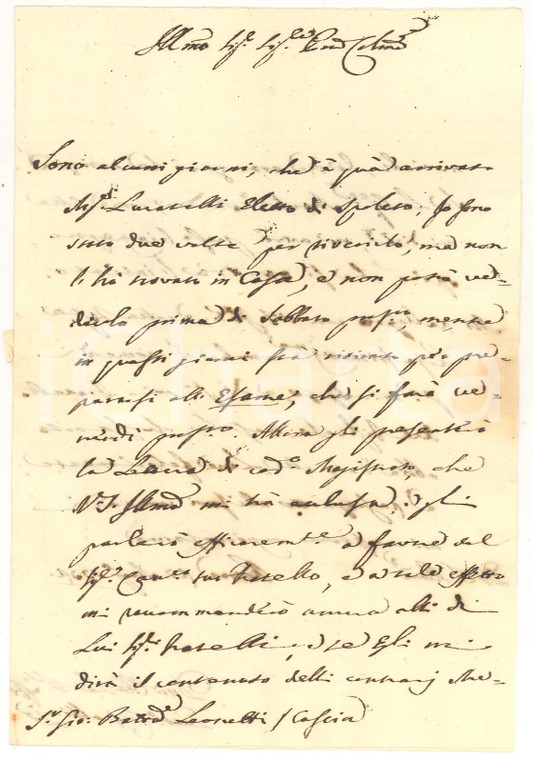 Illmo Sig.r Sig.r Pron Colmo
Sono alcuni giorni, che è quà arrivato
Msg.r Lucatelli Eletto di Spoleto; Io sono
stato due volte per riverirlo, ma non
l'hò trovato in Casa, e non potrò ve-
derlo prima di Sabbato pross.o, mentre
in questi giorni stà ritirato per pre-
pararsi all'Esame, che si farà ve-
nerdì pross.o. Allora gli presenterò
la Lettera di cod.o Magistrato, che
V.S. Illma mi hà acclusa, e gli
parlerò efficacem.te a favore del
Sig.r Can.co suo Fratello, e a tale effetto
mi raccomanderò ancora alli di
Lui Sig.ri Fratelli, e se Egli mi
dirà il contenuto delli contrarj Me-
S.r Gio: Batt.a Leonetti / Cascia